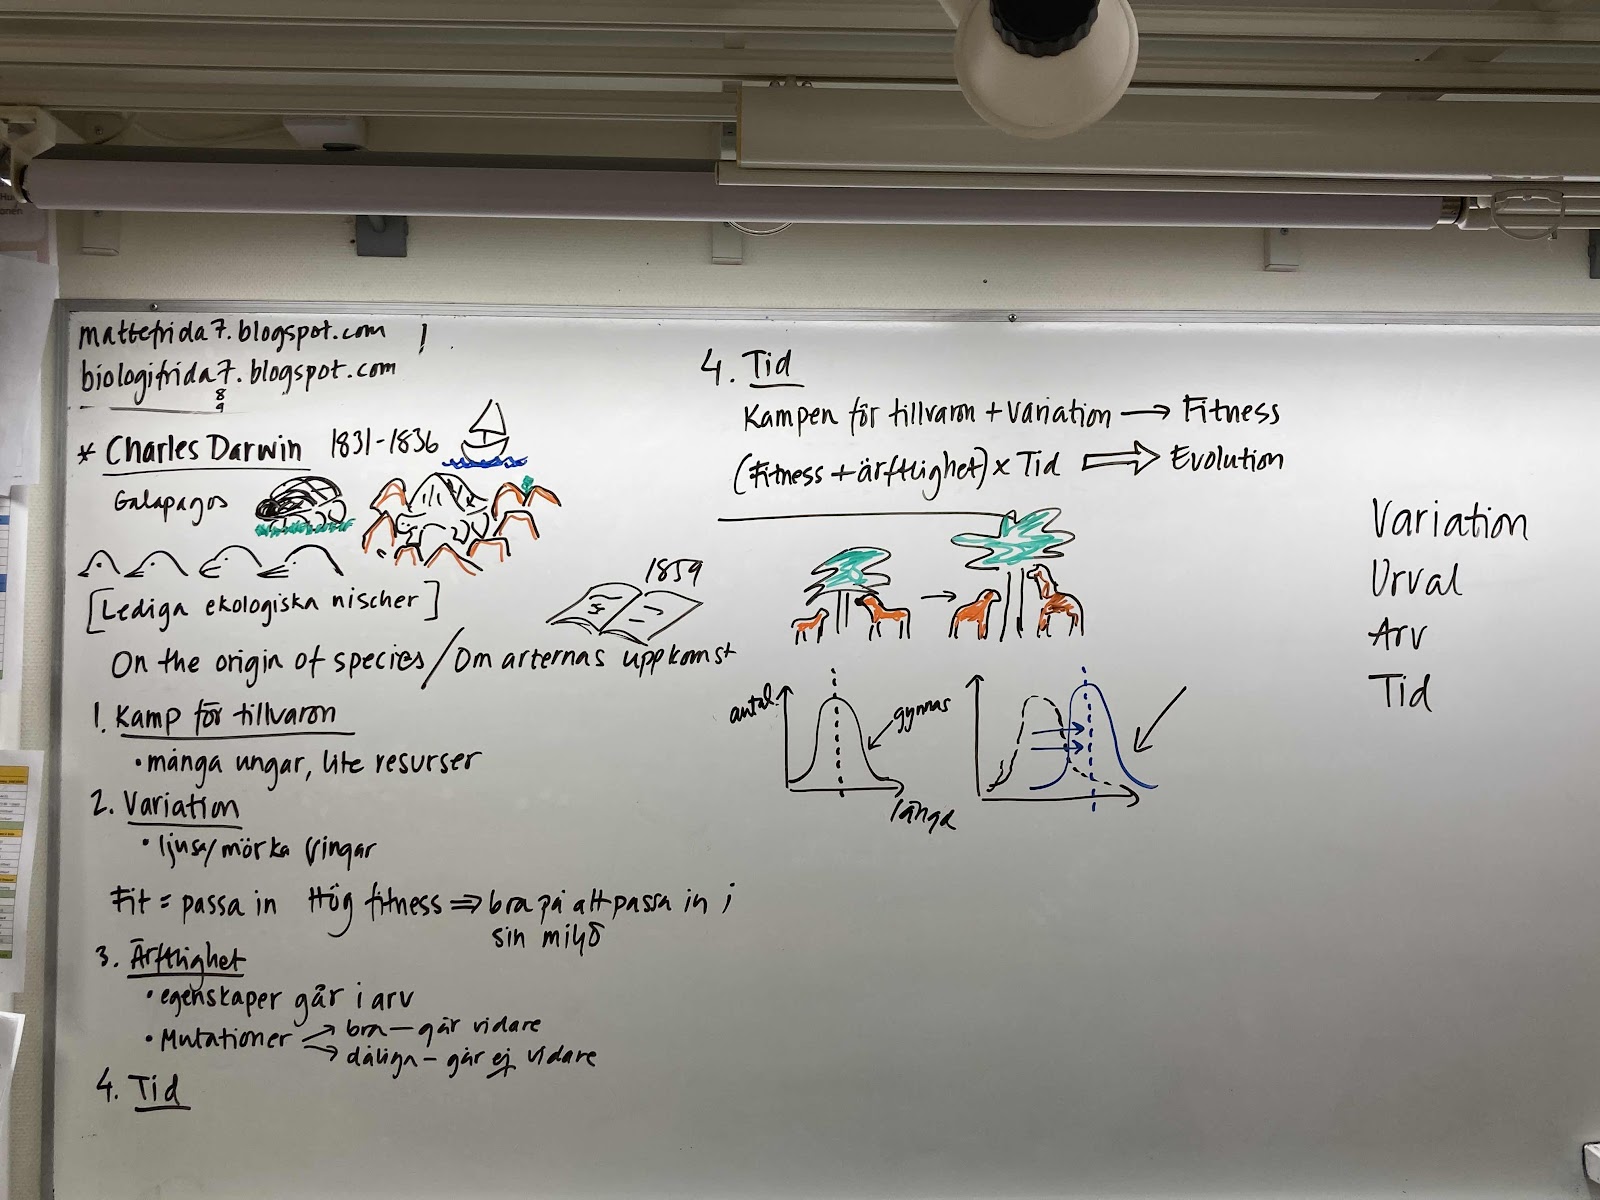 mattefrida7.blogspot.com !
biologifrida7.blogspot.com
8
9
* Charles Darwin 1831-1836
Galapagos
[Lediga ekologiska nischer]
1859
On the origin of species/Om arternas uppkomst
1. Kamp för tillvaron
• många ungar, lite resurser
2. Variation
• ljusa/mörka vingar
Fit = passa in Hög fitness ⇒ bra på att passa in i
sin miljö
3. Ärftlighet
• egenskaper går i arv
• Mutationer → bra — går vidare
→ dåliga — går ej vidare
4. Tid
4. Tid
Kampen för tillvaron + variation → Fitness
(Fitness + ärftlighet) x Tid ⇒ Evolution
→
antal
gynnas
längd
Variation
Urval
Arv
Tid